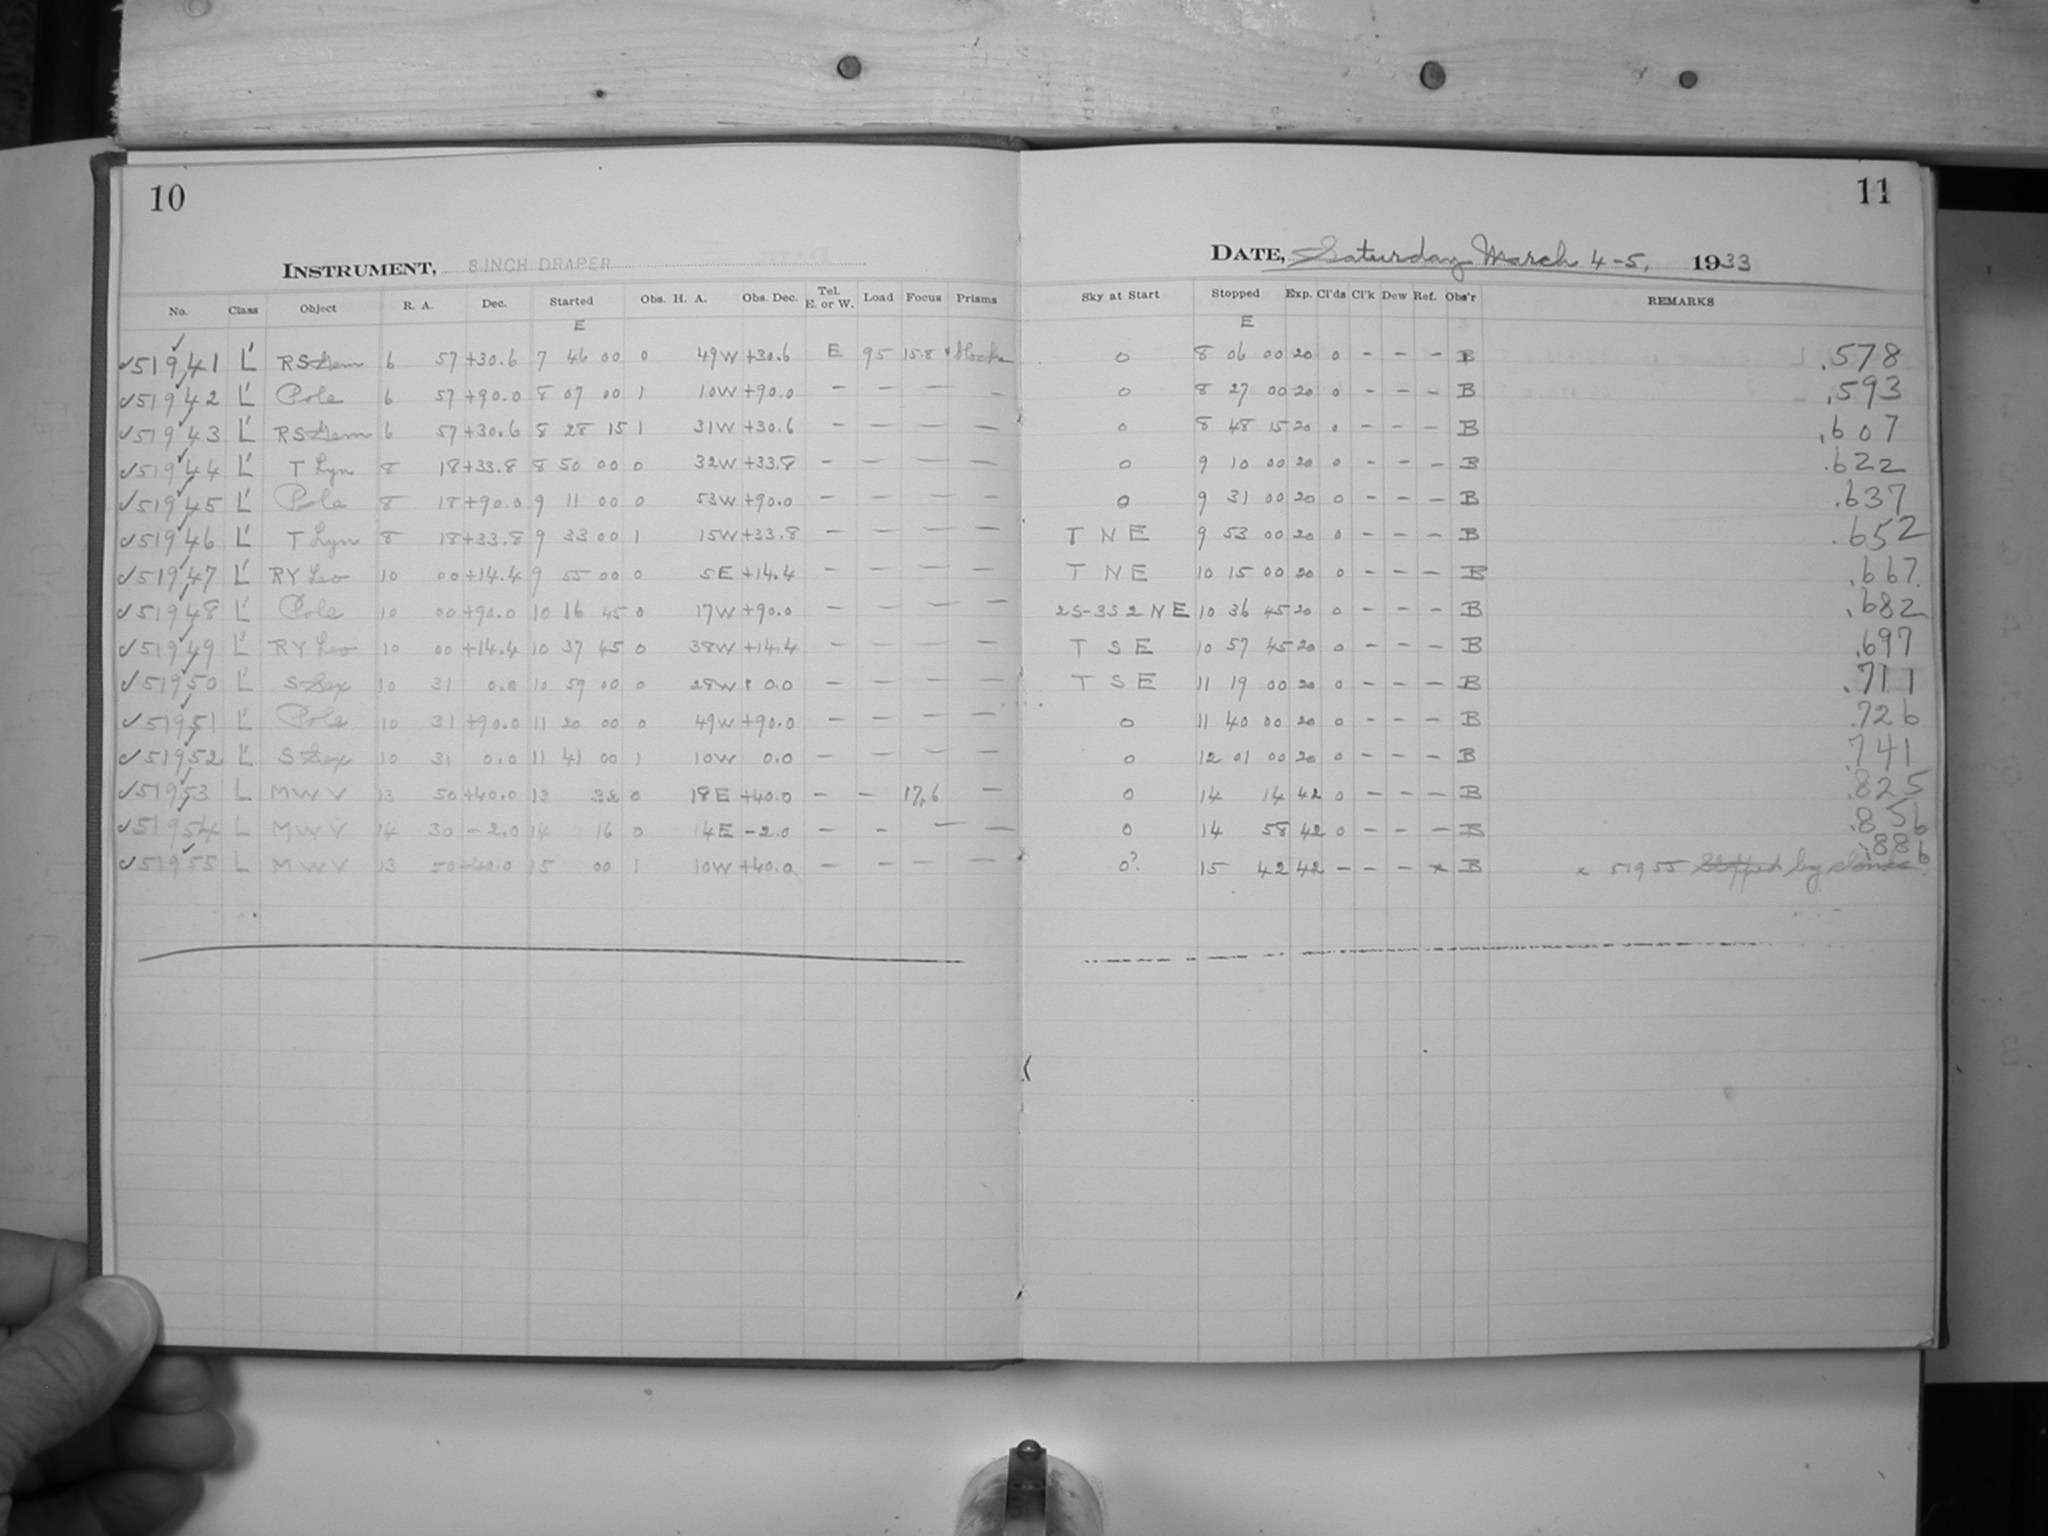 10
INSTRUMENT, 8-INCH DRAPER
No. Class Object R. A. Dec. Started Obs. H. A. Obs. Dec. Tel. E. or W. Load Focus Prisms
E
✓51941 L' RS Gem 6 57 +30.6 7 46 00 0 49W +30.6 E 95 15.8
✓51942 L' Pole 6 57 +90.0 8 07 00 1 10W +90.0 – – — –
✓51943 L' RS Gem 6 57 +30.6 8 28 15 1 31W +30.6 – — — —
✓51944 L' T Lyn 8 18 +33.8 8 50 00 0 32W +33.8 – — — —
✓51945 L' Pole 8 18 +90.0 9 11 00 0 53W +90.0 – — — —
✓51946 L' T Lyn 8 18 +33.8 9 33 00 1 15W +33.8 – — — —
✓51947 L' RY Leo 10 00 +14.4 9 55 00 0 5E +14.4 – — — —
✓51948 L' Pole 10 00 +90.0 10 16 45 0 17W +90.0 – — — —
✓51949 L' RY Leo 10 00 +14.4 10 37 45 0 38W +14.4 – — — —
✓51950 L' S Sex 10 31 0.0 10 59 00 0 28W 0.0 – — — —
✓51951 L' Pole 10 31 +90.0 11 20 00 0 49W +90.0 – — — —
✓51952 L' S Sex 10 31 0.0 11 41 00 1 10W 0.0 – — — —
✓51953 L MWV 13 50 +40.0 13 32 0 18E +40.0 – – 17.6 —
✓51954 L MWV 14 30 -2.0 14 16 0 14E -2.0 – – — —
✓51955 L MWV 13 50 +40.0 15 00 1 10W +40.0 – – — —
11
DATE, Saturday March 4-5, 1933
Sky at Start Stopped Exp. Cl'ds Cl'k Dew Ref. Obs'r REMARKS
E
0 8 06 00 20 0 – – – B .578
0 8 27 00 20 0 – – – B .593
0 8 48 15 20 0 – – – B .607
0 9 10 00 20 0 – – – B .622
0 9 31 00 20 0 – – – B .637
T NE 9 53 00 20 0 – – – B .652
T NE 10 15 00 20 0 – – – B .667
2S-3S 2NE 10 36 45 20 0 – – – B .682
T SE 10 57 45 20 0 – – – B .697
T SE 11 19 00 20 0 – – – B .711
0 11 40 00 20 0 – – – B .726
0 12 01 00 20 0 – – – B .741
0 14 14 42 0 – – – B .825
0 14 58 42 0 – – – B .856
0? 15 42 42 – – – x B x 51955 Stopped by .886